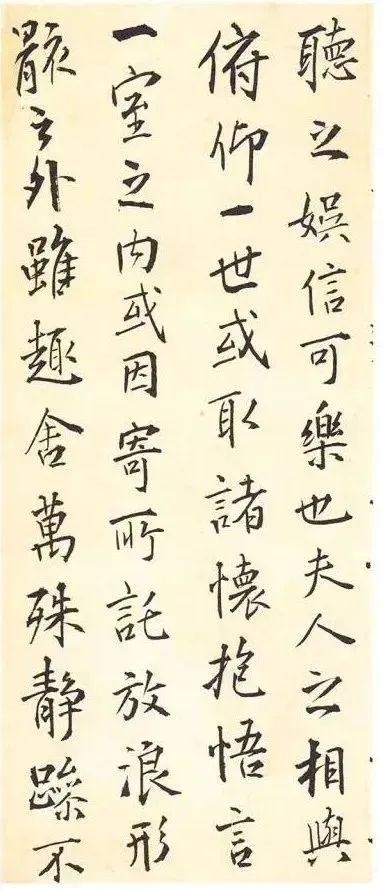 聽之娛信可樂也夫人之相與
俯仰一世或取諸懷抱悟言
一室之内或因寄所託放浪形
骸之外雖趣舍萬殊静躁不